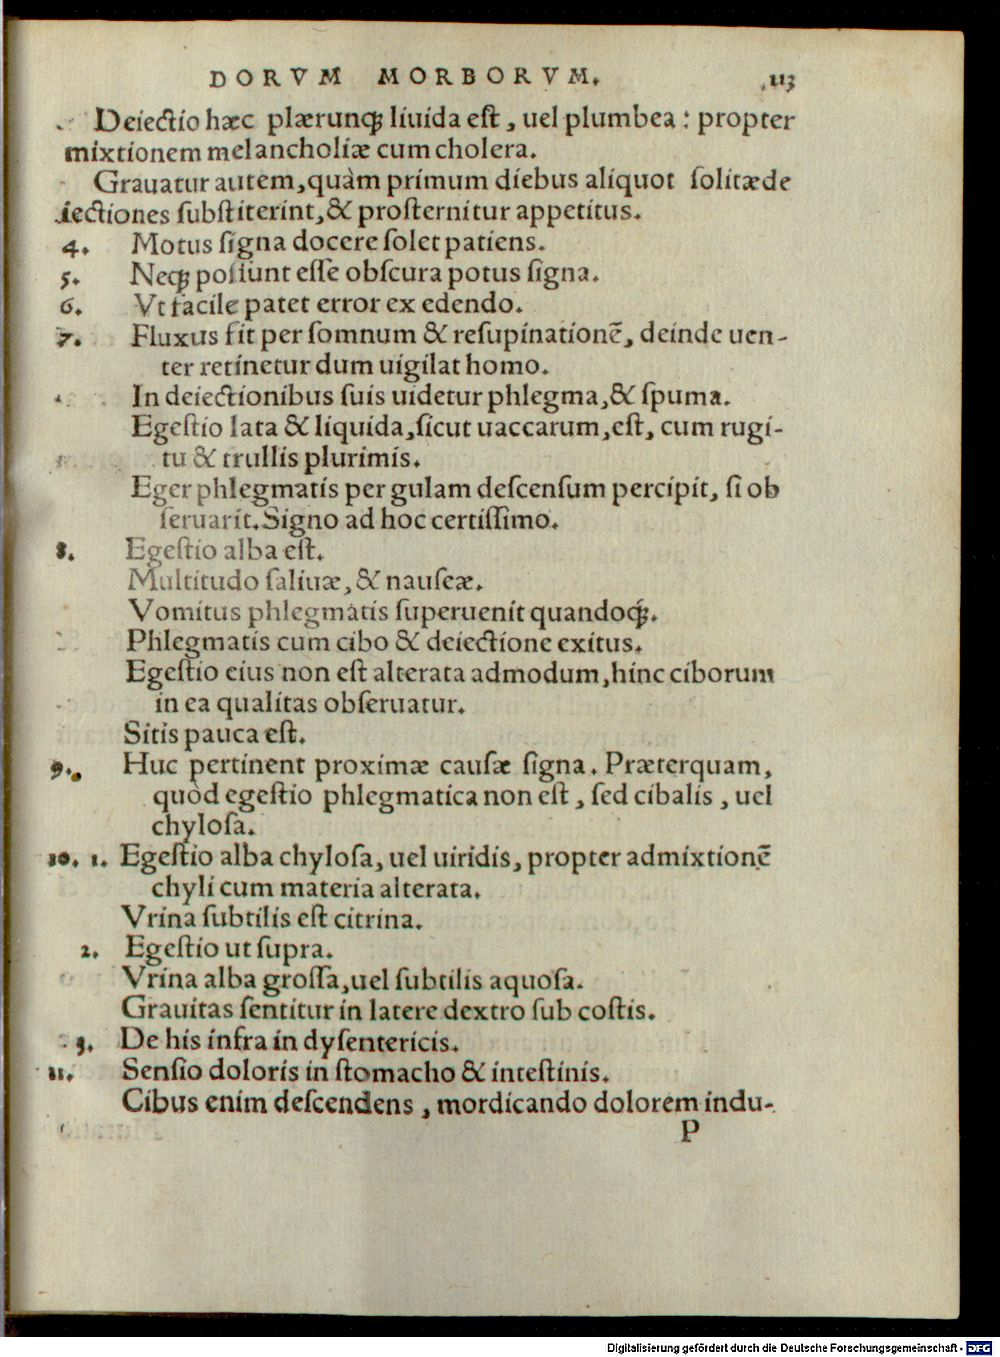 DORVM MORBORVM. 113
Deiectio hæc plærunq; liuida est, uel plumbea: propter
mixtionem melancholiæ cum cholera.
Grauatur autem, quàm primum diebus aliquot solitæ de
iectiones substiterint, & prosternitur appetitus.
4. Motus signa docere solet patiens.
5. Neq; possunt esse obscura potus signa.
6. Vt facile patet error ex edendo.
7. Fluxus fit per somnum & resupinationẽ, deinde uen-
ter retinetur dum uigilat homo.
In deiectionibus suis uidetur phlegma, & spuma.
Egestio lata & liquida, sicut uaccarum, est, cum rugi-
tu & trullis plurimis.
Eger phlegmatis per gulam descensum percipit, si ob
seruarit. Signo ad hoc certissimo.
8. Egestio alba est.
Multitudo saliuæ, & nauseæ.
Vomitus phlegmatis superuenit quandoq;.
Phlegmatis cum cibo & deiectione exitus.
Egestio eius non est alterata admodum, hinc ciborum
in ea qualitas obseruatur.
Sitis pauca est.
9. Huc pertinent proximæ causæ signa. Præterquam,
quòd egestio phlegmatica non est, sed cibalis, uel
chylosa.
10. 1. Egestio alba chylosa, uel uiridis, propter admixtionẽ
chyli cum materia alterata.
Vrina subtilis est citrina.
2. Egestio ut supra.
Vrina alba grossa, uel subtilis aquosa.
Grauitas sentitur in latere dextro sub costis.
3. De his infra in dysentericis.
11. Sensio doloris in stomacho & intestinis.
Cibus enim descendens, mordicando dolorem indu-
P
Digitalisierung gefördert durch die Deutsche Forschungsgemeinschaft - DFG